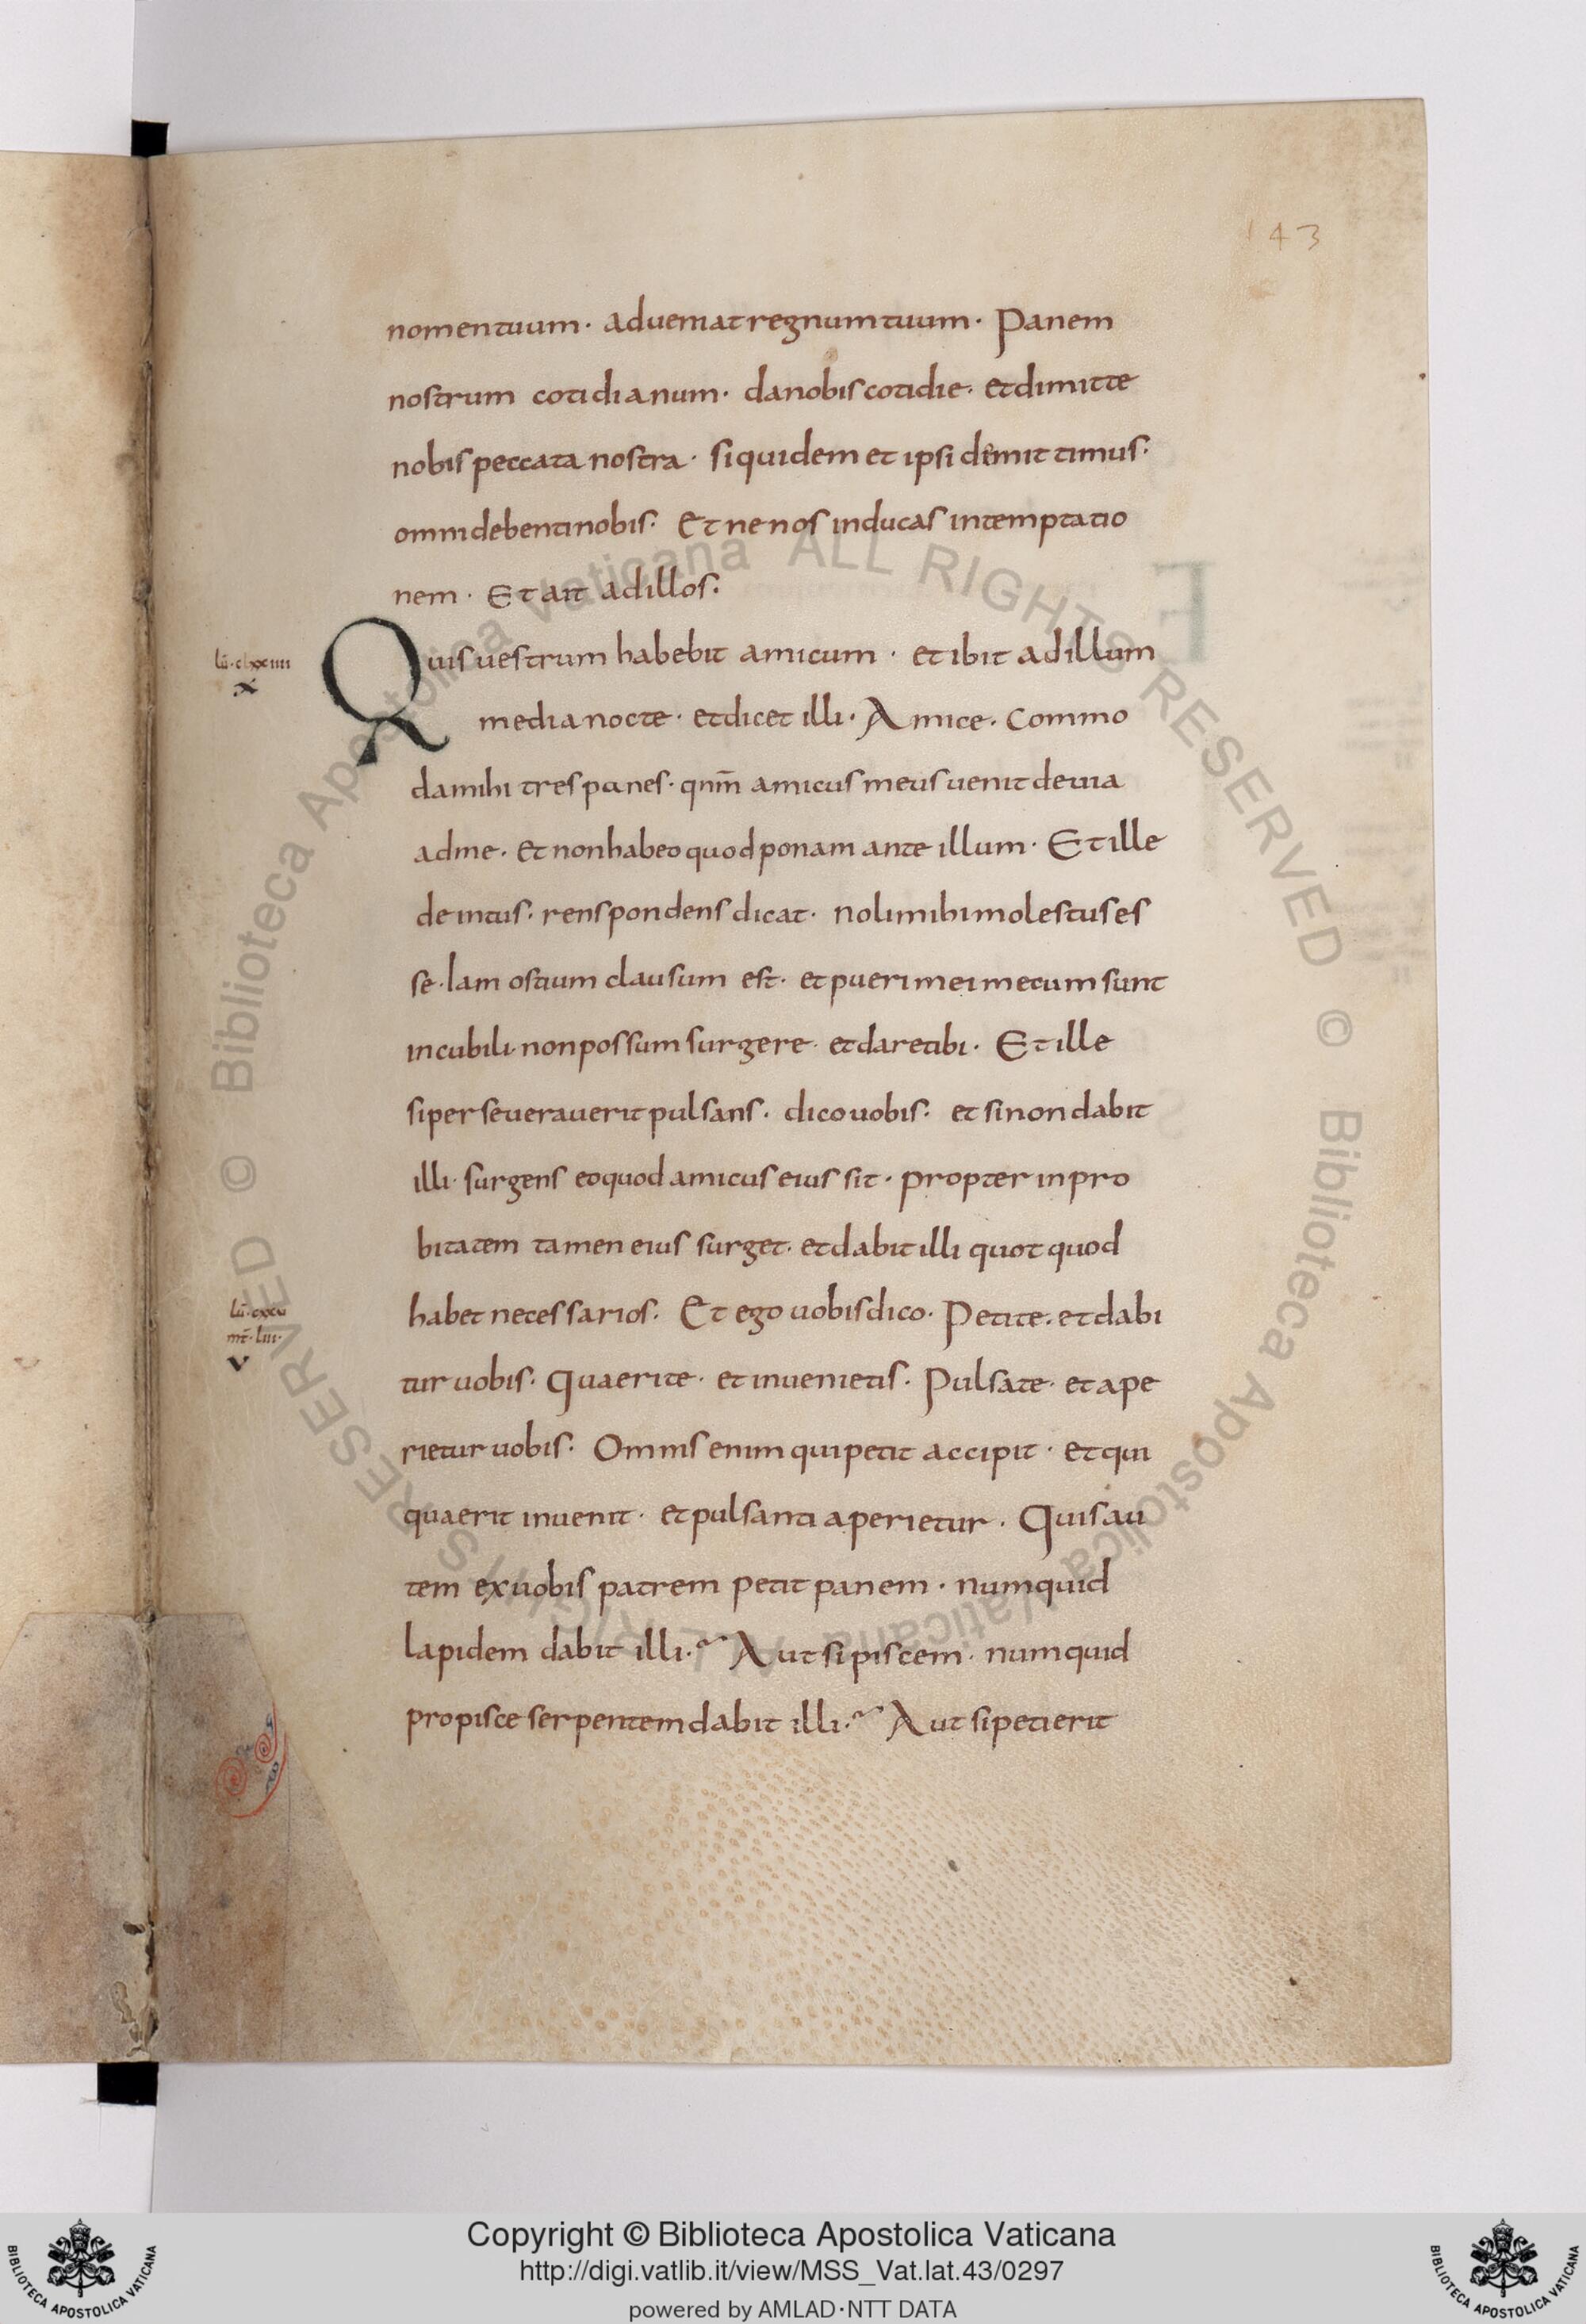 143
nomen tuum · adueniat regnum tuum · Panem
nostrum cotidianum · da nobis cotidie · et dimitte
nobis peccata nostra · siquidem et ipsi dimittimus ·
omni debenti nobis · Et ne nos inducas in temptatio
nem · Et ait ad illos ·
Quis uestrum habebit amicum · et ibit ad illum
media nocte · et dicet illi · Amice · Commo
da mihi tres panes · qnm̄ amicus meus uenit de uia
ad me · et non habeo quod ponam ante illum · Et ille
de intus · renspondens dicat · noli mihi molestus es
se · Iam ostium clausum est · et pueri mei mecum sunt
in cubili · non possum surgere · et dare tibi · Et ille
si perseuerauerit pulsans · dico uobis · et si non dabit
illi · surgens eo quod amicus eius sit · propter inpro
bitatem tamen eius surget · et dabit illi quotquod
habet necessarios · Et ego uobis dico · Petite · et dabi
tur uobis · Quaerite · et inuenietis · Pulsate · et ape
rietur uobis · Omnis enim qui petit accipit · et qui
quaerit inuenit · et pulsanti aperietur · Quis au
tem ex uobis patrem petit panem · numquid
lapidem dabit illi · Aut si piscem · numquid
pro pisce serpentem dabit illi · Aut si petierit
x
mt · liii ·
v
© Biblioteca Apostolica Vaticana ALL RIGHTS RESERVED © Biblioteca Apostolica Vaticana ALL RIGHTS RESERVED
Copyright © Biblioteca Apostolica Vaticana
http://digi.vatlib.it/view/MSS_Vat.lat.43/0297
powered by AMLAD·NTT DATA
BIBLIOTECA APOSTOLICA VATICANA
BIBLIOTECA APOSTOLICA VATICANA